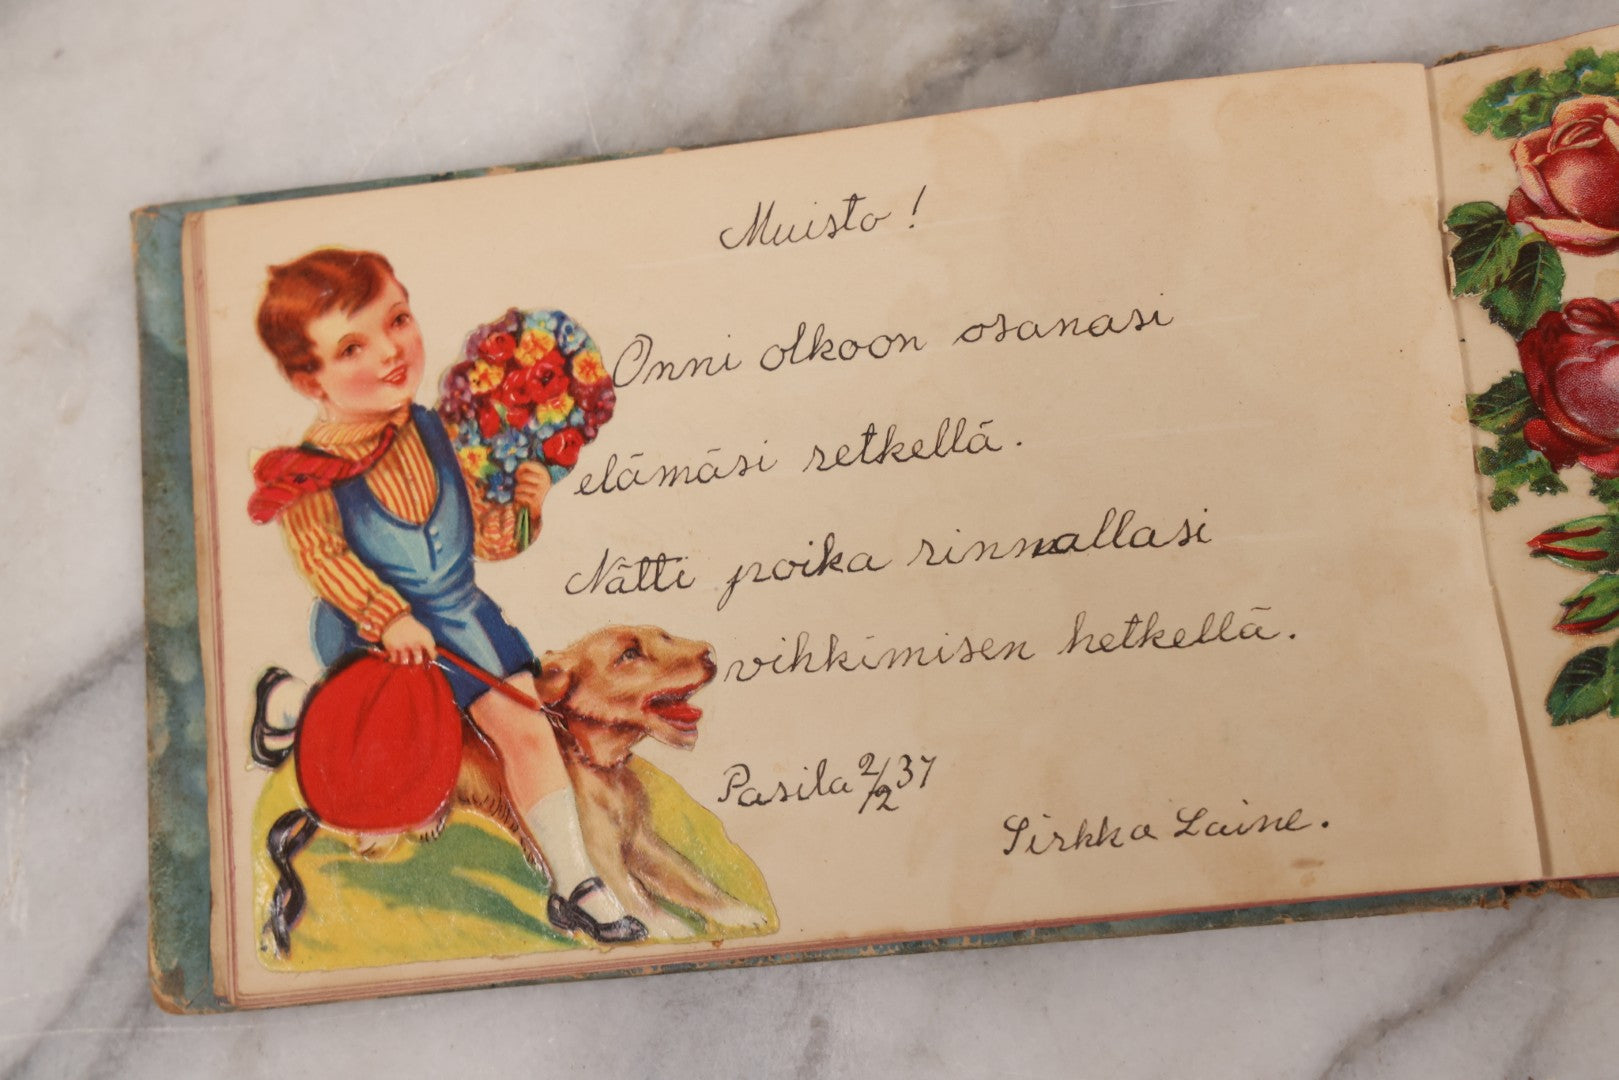 Muisto!
Onni olkoon osanasi
elämäsi retkellä.
Nätti poika rinnallasi
vihkimisen hetkellä.
Pasila 2/2 37
Sirkka Laine.